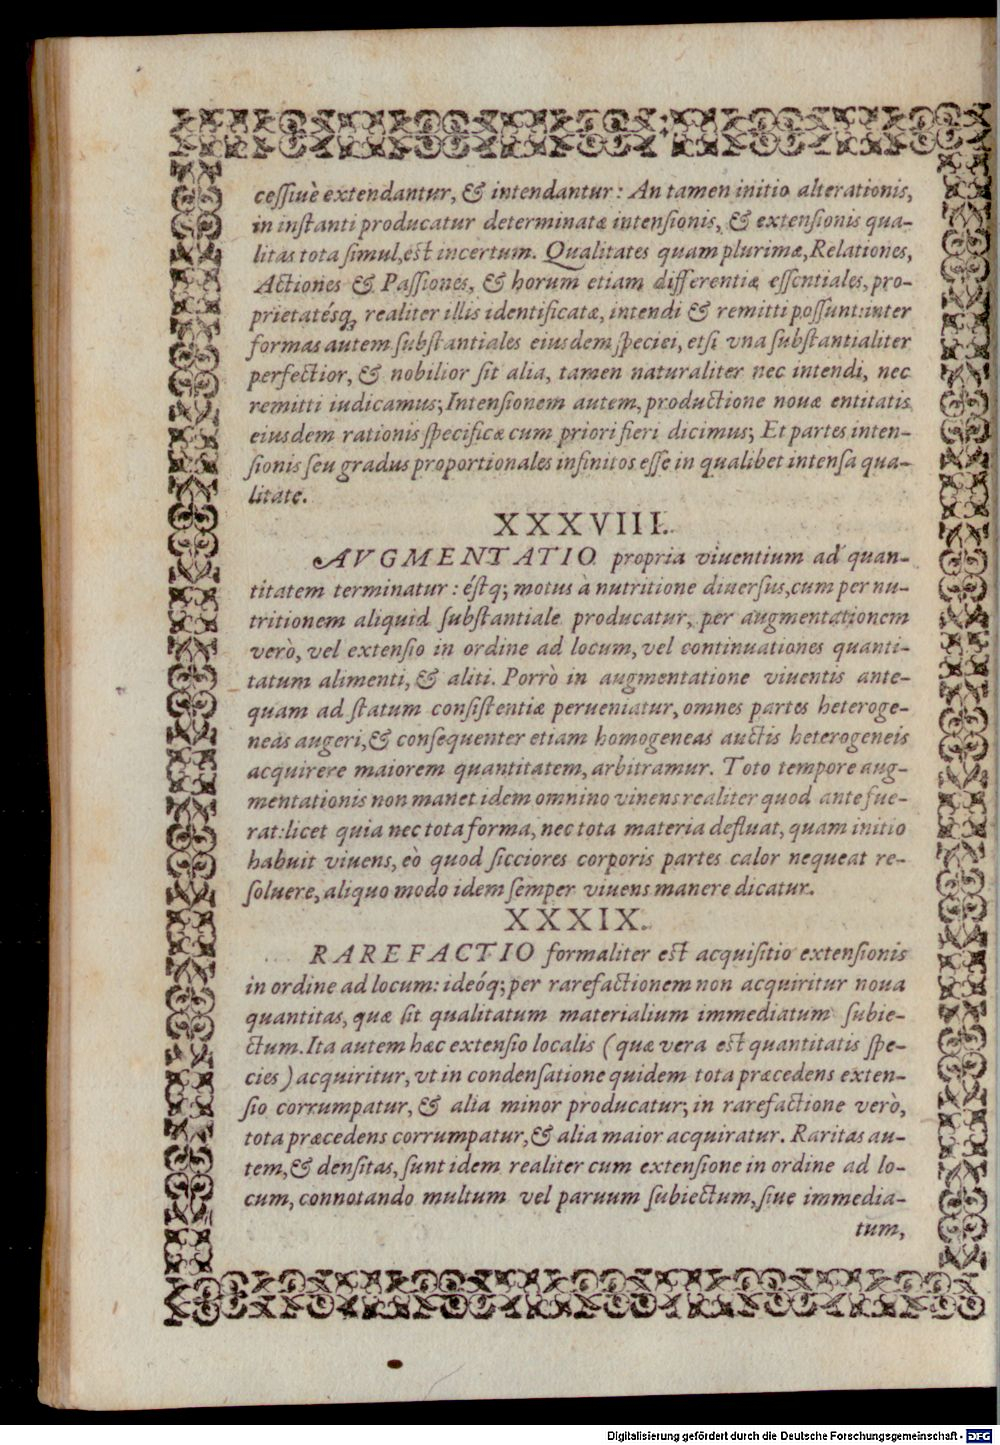 ceſſiuè extendantur, & intendantur: An tamen initio alterationis,
in inſtanti producatur determinatæ intenſionis, & extenſionis qua-
litas tota ſimul, est incertum. Qualitates quam plurimæ, Relationes,
Actiones & Paſſiones, & horum etiam differentiæ eſſentiales, pro-
prietatésq; realiter illis identificatæ, intendi & remitti poſſunt: inter
formas autem ſubſtantiales eiusdem ſpeciei, etſi vna ſubſtantialiter
perfectior, & nobilior ſit alia, tamen naturaliter nec intendi, nec
remitti iudicamus; Intenſionem autem, productione nouæ entitatis
eiusdem rationis ſpecificæ cum priori fieri dicimus; Et partes inten-
ſionis ſeu gradus proportionales infinitos eſſe in qualibet intenſa qua-
litate.
XXXVIII.
AVGMENTATIO propria viuentium ad quan-
titatem terminatur: éſtq; motus à nutritione diuerſus, cum per nu-
tritionem aliquid ſubſtantiale producatur, per augmentationem
verò, vel extenſio in ordine ad locum, vel continuationes quanti-
tatum alimenti, & aliti. Porrò in augmentatione viuentis ante-
quam ad ſtatum conſiſtentiæ perueniatur, omnes partes heteroge-
neas augeri, & conſequenter etiam homogeneas auctis heterogeneis
acquirere maiorem quantitatem, arbitramur. Toto tempore aug-
mentationis non manet idem omnino vinens realiter quod ante fue-
rat: licet quia nec tota forma, nec tota materia defluat, quam initio
habuit viuens, eò quod ſicciores corporis partes calor nequeat re-
ſoluere, aliquo modo idem ſemper viuens manere dicatur.
XXXIX.
RAREFACTIO formaliter est acquiſitio extenſionis
in ordine ad locum: ideóq; per rarefactionem non acquiritur noua
quantitas, quæ ſit qualitatum materialium immediatum ſubie-
ctum. Ita autem hæc extenſio localis (quæ vera est quantitatis ſpe-
cies) acquiritur, vt in condenſatione quidem tota præcedens exten-
ſio corrumpatur, & alia minor producatur; in rarefactione verò,
tota præcedens corrumpatur, & alia maior acquiratur. Raritas au-
tem, & denſitas, ſunt idem realiter cum extenſione in ordine ad lo-
cum, connotando multum vel paruum ſubiectum, ſiue immedia-
tum,
Digitalisierung gefördert durch die Deutsche Forschungsgemeinschaft - DFG